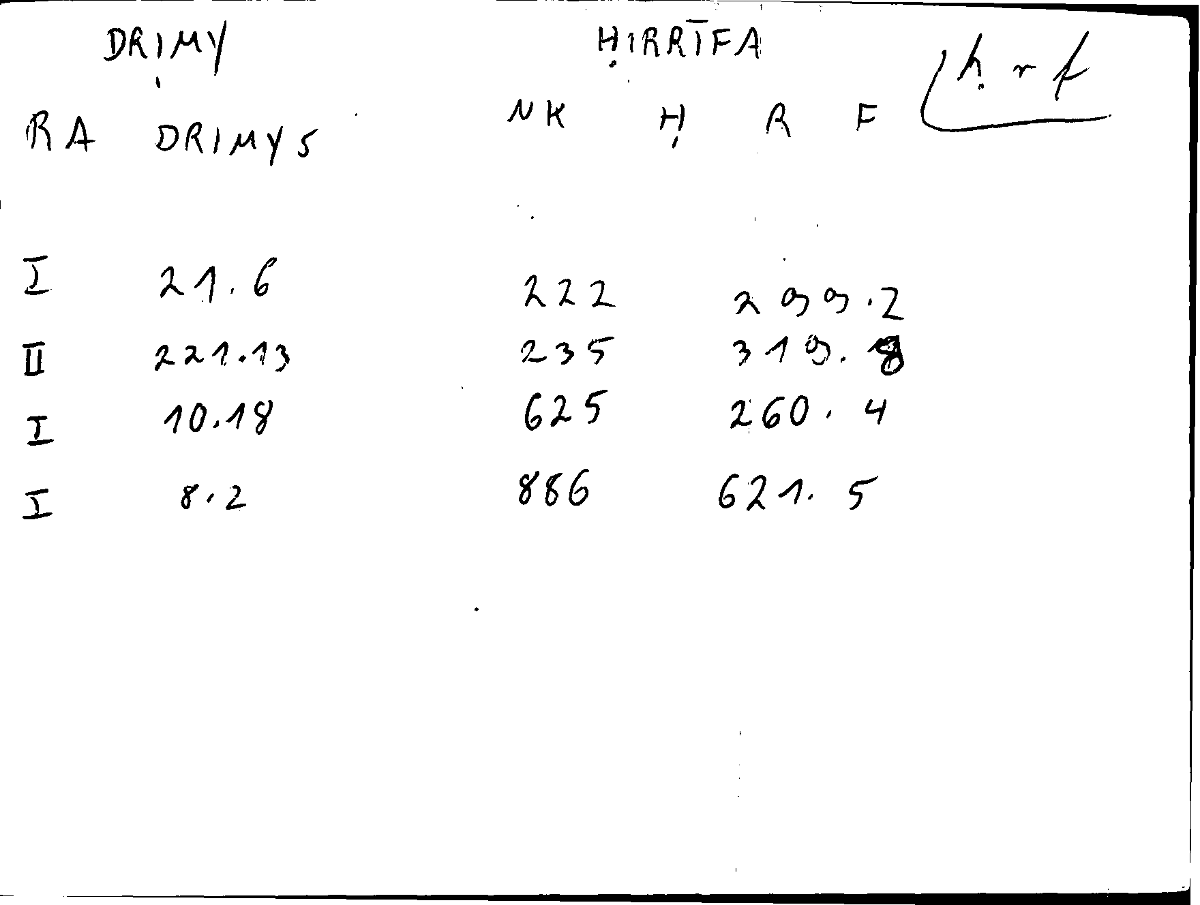 DRIMY ḤIRRĪFA
RA DRIMYS NK Ḥ R F ḥ r f
I 21.6 222 299.2
II 221.13 235 319.8
I 10.18 625 260.4
I 8.2 886 621.5